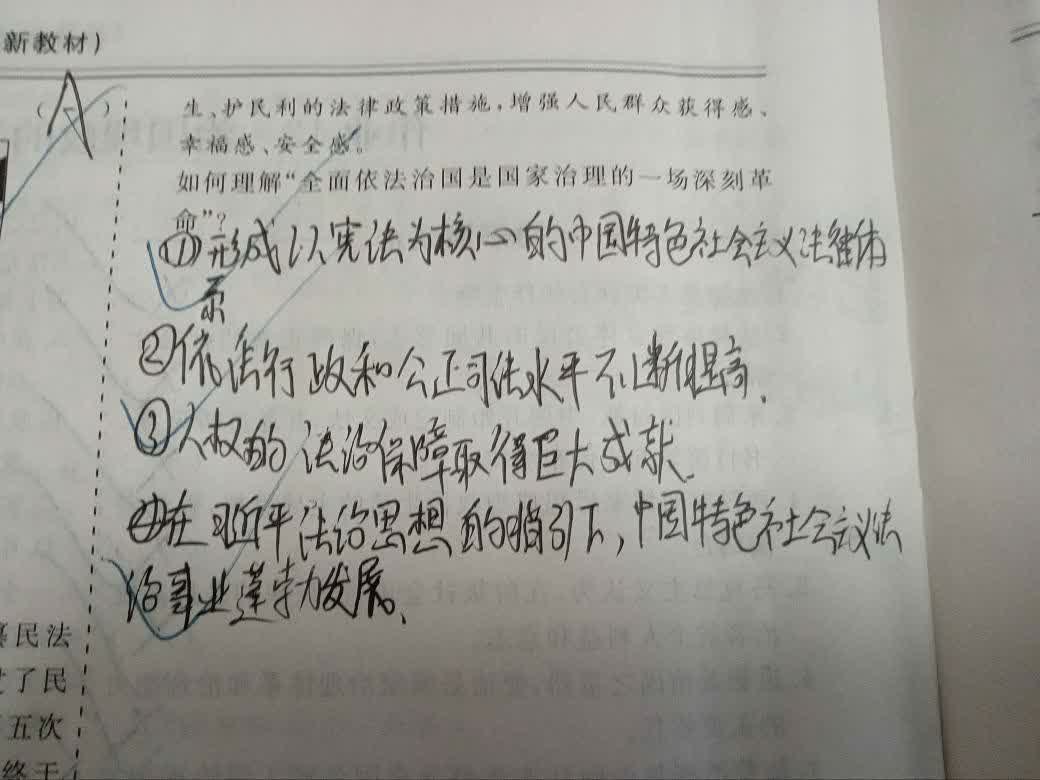 新教材)
(A)
生、护民利的法律政策措施,增强人民群众获得感、
幸福感、安全感。
如何理解“全面依法治国是国家治理的一场深刻革
命”?
①形成以宪法为核心的中国特色社会主义法律体
系
②依法行政和公正司法水平不断提高.
③人权的法治保障取得巨大成就.
④在习近平法治思想的指引下,中国特色社会主义法
治事业蓬勃发展.
民法
了民
五次
终于